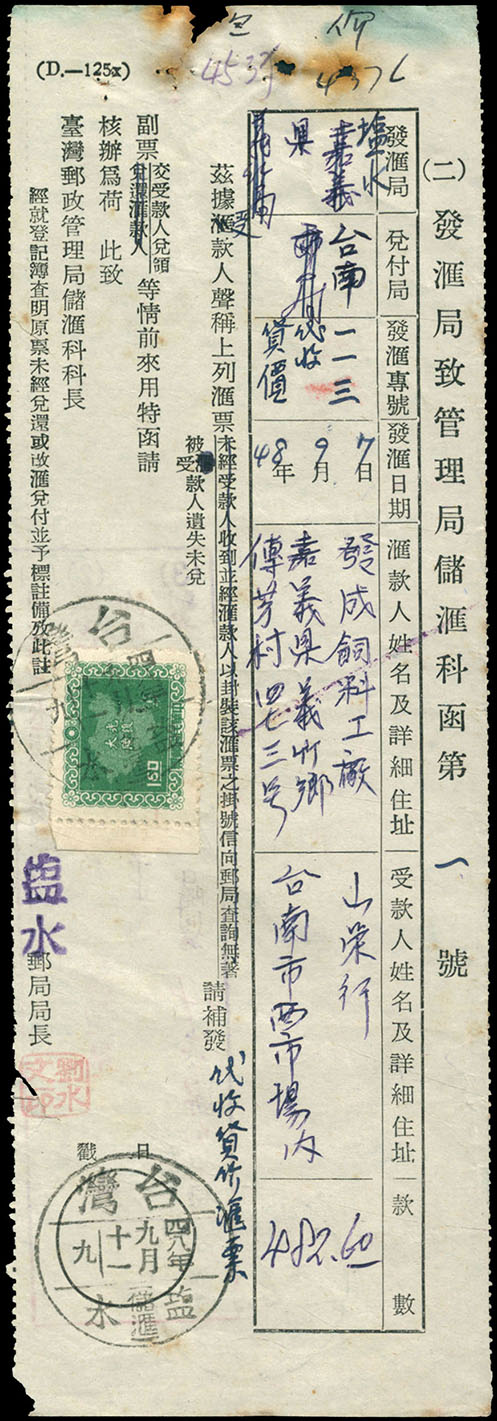 (D.—125x)
4376
(二) 發滙局致管理局儲滙科函第 一 號
發滙局 兌付局 發滙專號 發滙日期 滙款人姓名及詳細住址 受款人姓名及詳細住址 款 數
塩水
嘉義
県
台南
一一三
代收
貨價
48年9月7日
發成飼料工廠
嘉義県義竹鄉
傳芳村四七三号
山榮行
台南市西市場內
482.60
茲據受款人聲稱上列滙票
未經受款人收到並經滙款人以封裝該滙票之掛號信向郵局查詢無著
被受款人遺失未兌
請補發
代收貨价滙票
副票
交受款人兌領
免還滙款人
等情前來用特函請
核辦爲荷 此致
臺灣郵政管理局儲滙科科長
經就登記簿查明原票未經兌還或改滙兌付並予標註備攷此註
台灣
150
塩水
郵局局長
劉水文
日
戳
台灣
四八年
九月
十一
九
儲滙
塩水